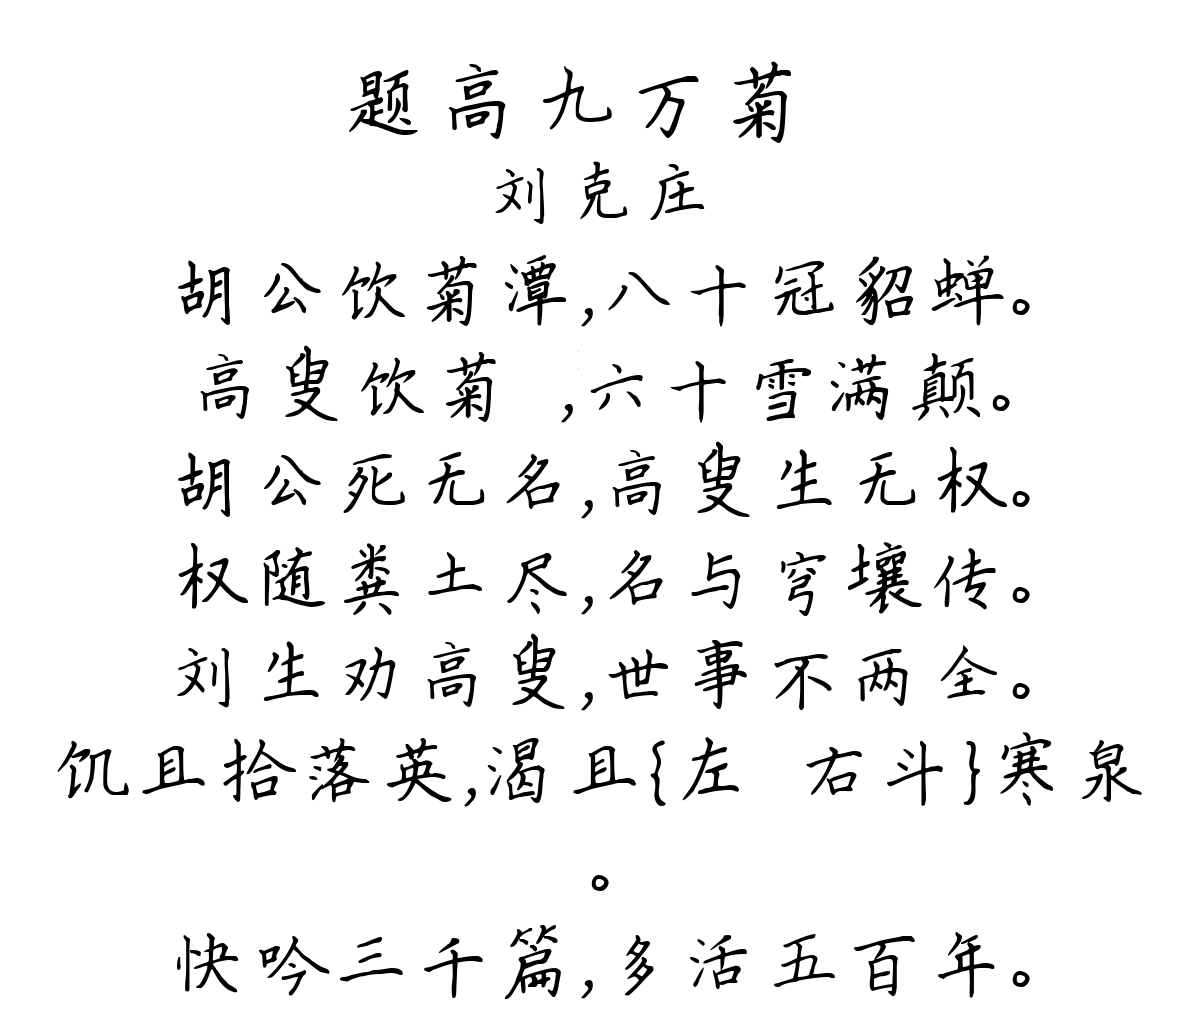 题高九万菊
刘克庄
胡公饮菊潭,八十冠貂蝉。
高叟饮菊 ,六十雪满颠。
胡公死无名,高叟生无权。
权随粪土尽,名与穹壤传。
刘生劝高叟,世事不两全。
饥且拾落英,渴且{左 右斗}寒泉
。
快吟三千篇,多活五百年。